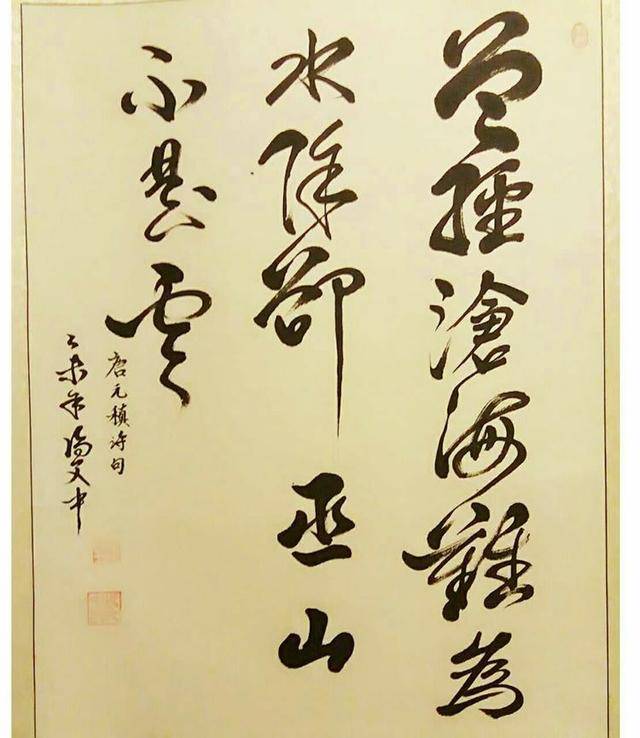 曾經滄海難為
水除卻巫山
不是雲
唐元稹詩句
乙未年文中